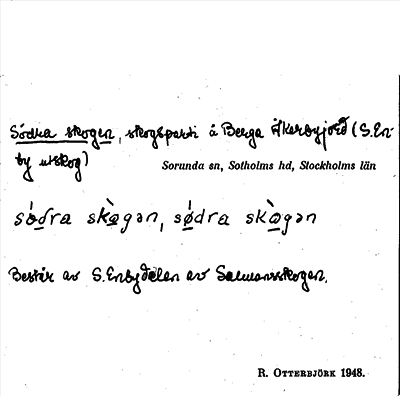 Södra skogen, skogsparti å Berga Åkerbyjord (S.En-
by utskog)
Sorunda sn, Sotholms hd, Stockholms län
sǿdra skɷ̀gən, sǿdra skɷ̀gən
Består av S.Enbydelen av Salmansskogen.
R. OTTERBJÖRK 1948.